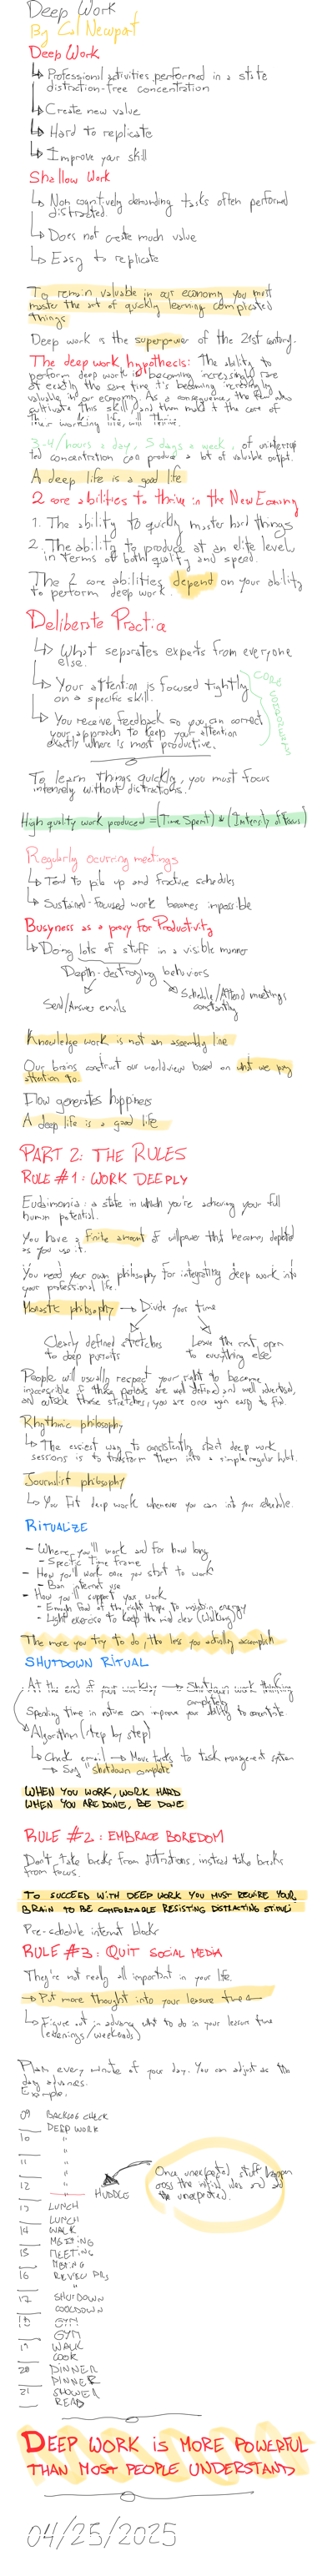 Deep Work
By Cal Newport
Deep Work
↳ Professional activities performed in a state
distraction-free concentration
↳ Create new value
↳ Hard to replicate
↳ Improve your skill
Shallow Work
↳ Non cognitively demanding tasks often performed
distracted.
↳ Does not create much value
↳ Easy to replicate
To remain valuable in our economy you must
master the art of quickly learning complicated
things.
Deep work is the superpower of the 21st century.
The deep work hypothesis: The ability to
perform deep work is becoming increasingly rare
at exactly the same time it's becoming increasingly
valuable in our economy. As a consequence, the few who
cultivate this skill, and then make it the core of
their working life, will thrive.
3-4/hours a day, 5 days a week, of uninterrup
ted concentration can produce a lot of valuable output.
A deep life is a good life
2 core abilities to thrive in the New Economy
1. The ability to quickly master hard things
2. The ability to produce at an elite level
in terms of both quality and speed.
The 2 core abilities depend on your ability
to perform deep work.
Deliberate Practice
↳ What separates experts from everyone
else.
↳ Your attention is focused tightly
on a specific skill.
↳ You receive feedback so you can correct
your approach to keep your attention
exactly where is most productive.
CORE
COMPONENTS
To learn things quickly, you must focus
intensely without distractions.
High quality work produced = (Time Spent) * (Intensity of Focus)
Regularly ocurring meetings
↳ Tend to pile up and fracture schedules
↳ Sustained-focused work becomes impossible
Busyness as a proxy for Productivity
↳ Doing lots of stuff in a visible manner
Depth-destroying behaviors
Send/Answer emails
Schedule/Attend meetings
constantly
Knowledge work is not an assembly line
Our brains construct our worldview based on what we pay
attention to.
Flow generates happiness
A deep life is a good life
PART 2: THE RULES
RULE #1: WORK DEEPLY
Eudaimonia: a state in which you're achieving your full
human potential.
You have a finite amount of willpower that becomes depleted
as you use it.
You need your own philosophy for integrating deep work into
your professional life.
Monastic philosophy → Divide your time
Clearly defined stretches
to deep pursuits
Leave the rest open
to everything else
People will usually respect your right to become
inaccessible if those periods are well defined and well advertised,
and outside those stretches, you are once again easy to find
Rhythmic philosophy
↳ The easiest way to consistently start deep work
sessions is to transform them into a simple regular habit.
Journalist philosophy
↳ You fit deep work whenever you can into your schedule.
RITUALIZE
- Where you'll work and for how long
- Specific time frame
- How you'll work once you start to work
- Ban internet use
- How you'll support your work
- Enough food of the right type to maintain energy
- Light exercise to keep the mind clear (Walking)
The more you try to do, the less you actually accomplish.
SHUTDOWN RITUAL
At the end of your workday → Shutdown work thinking
completely
Spending time in nature can improve your ability to concentrate
Algorithm (step by step)
↳ Check email → Move tasks to task management system
→ Say "shutdown complete"
WHEN YOU WORK, WORK HARD
WHEN YOU ARE DONE, BE DONE
RULE #2: EMBRACE BOREDOM
Don't take breaks from distractions, instead take breaks
from focus.
TO SUCCEED WITH DEEP WORK YOU MUST REWIRE YOUR
BRAIN TO BE COMFORTABLE RESISTING DISTRACTING STIMULI
Pre-schedule internet blocks
RULE #3: QUIT SOCIAL MEDIA
They're not really all important in your life.
→ Put more thought into your leisure time ←
↳ Figure out in advance what to do in your leisure time
(evenings/weekends)
Plan every minute of your day. You can adjust as the
day advances.
Example:
09 BACKLOG CHECK
DEEP WORK
10 "
"
11 "
"
12 "
" HUDDLE
Once unexpected stuff happen
cross the initial idea and add
the unexpected.
13 LUNCH
LUNCH
14 WALK
MEETING
15 MEETING
MEETING
16 REVIEW PRs
"
17 SHUTDOWN
COOLDOWN
18 GYM
GYM
19 WALK
COOK
20 DINNER
DINNER
21 SHOWER
READ
DEEP WORK IS MORE POWERFUL
THAN MOST PEOPLE UNDERSTAND
04/25/2025